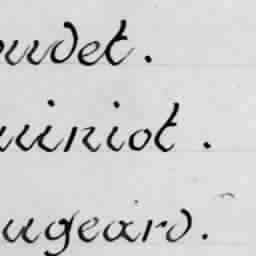 oudet.
uiniot.
ugeard.